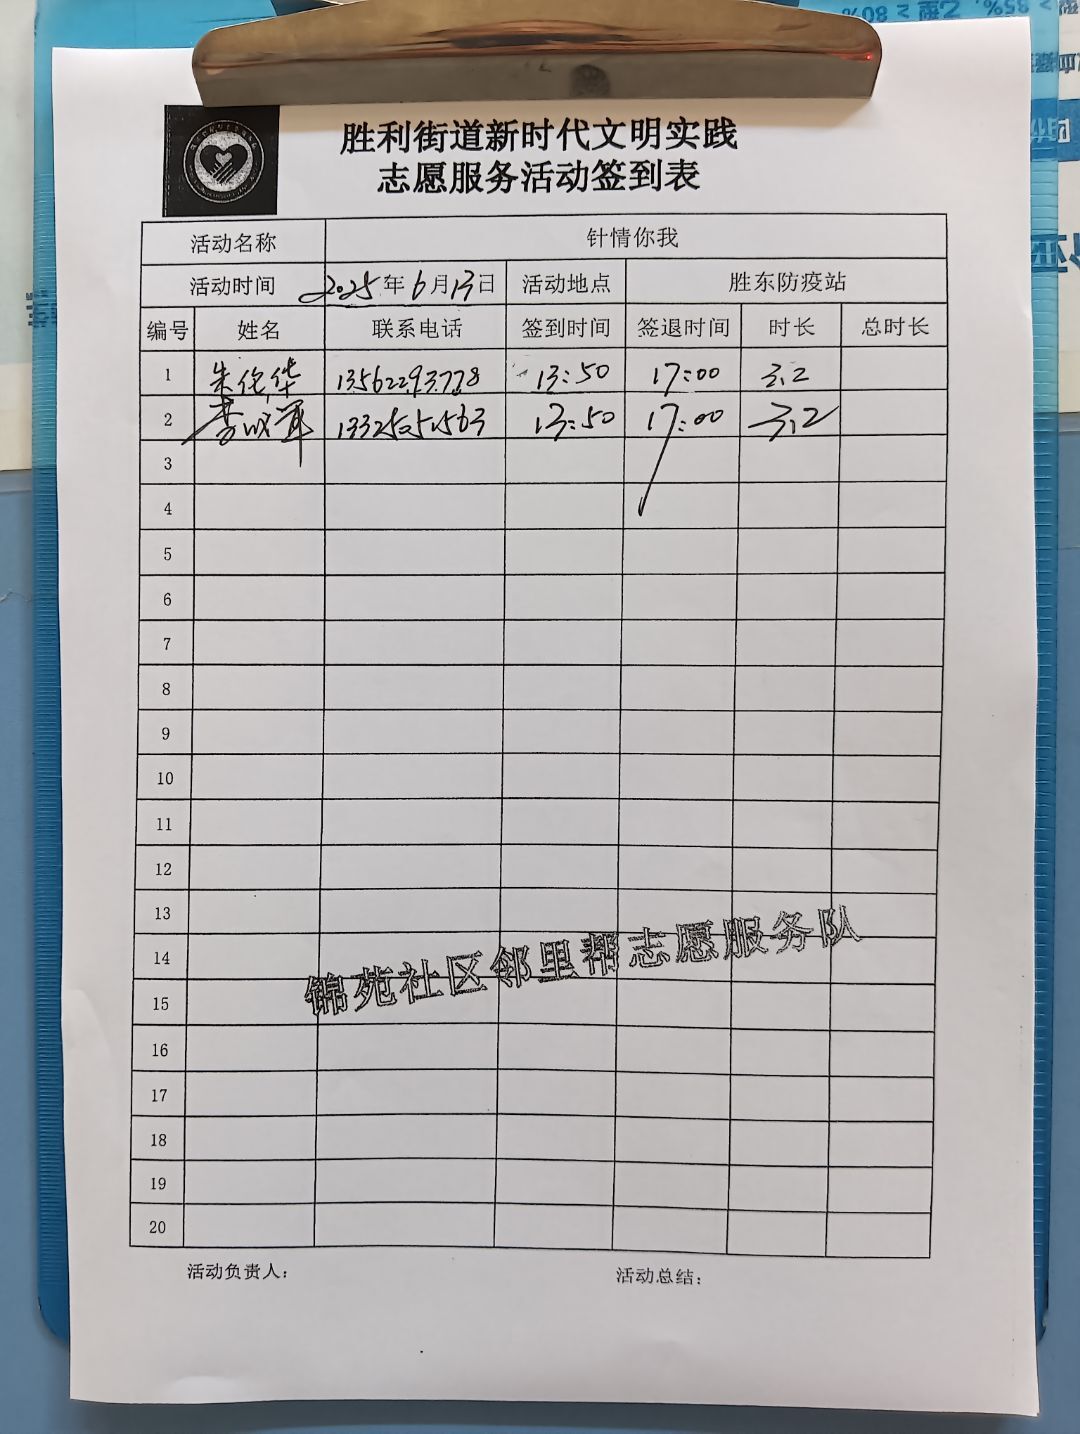 胜利街道新时代文明实践
志愿服务活动签到表
活动名称 针情你我
活动时间 2025年6月13日 活动地点 胜东防疫站
编号 姓名 联系电话 签到时间 签退时间 时长 总时长
1 朱伦华 13562293778 13:50 17:00 3.2
2 李 军 13325051563 13:50 17:00 3.2
3
4
5
6
7
8
9
10
11
12
13
14
15
16
17
18
19
20
锦苑社区邻里帮志愿服务队
活动负责人： 活动总结：